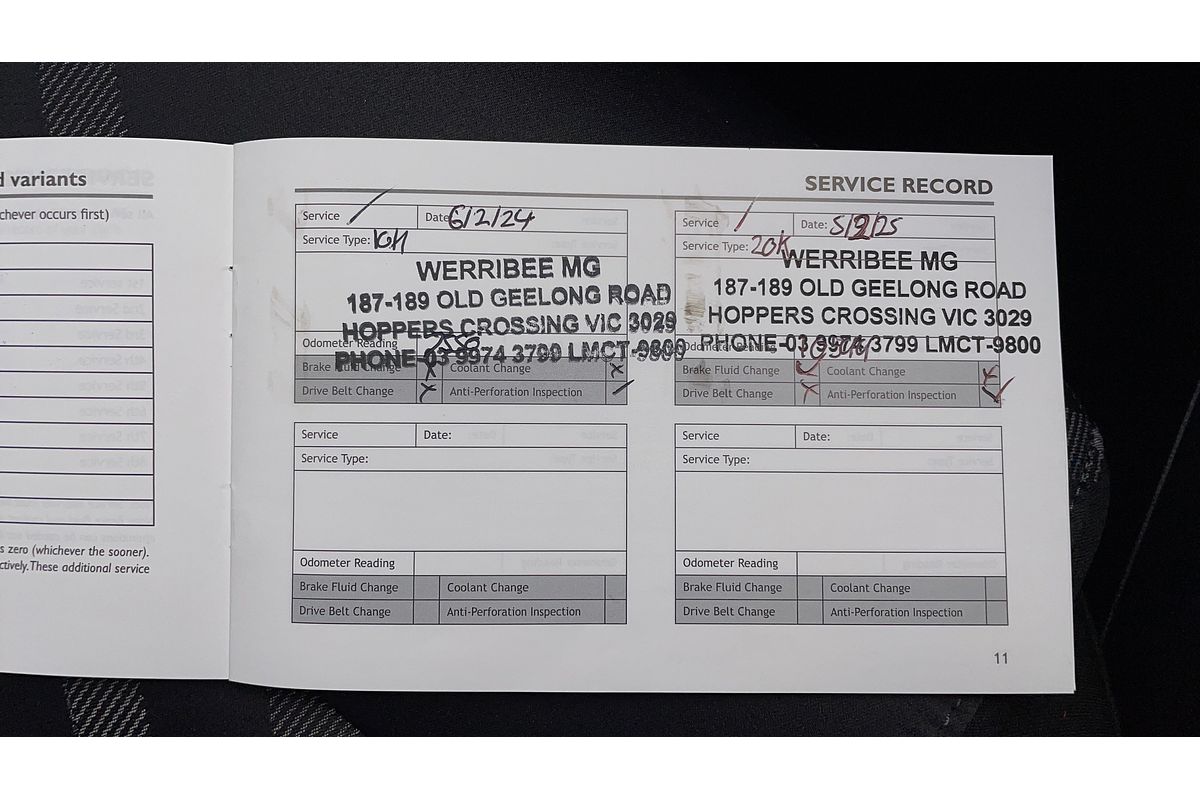 d variants
chever occurs first)
s zero (whichever the sooner).
ctively. These additional service
SERVICE RECORD
Service
Date: 6/2/24
Service Type:
WERRIBEE MG
187-189 OLD GEELONG ROAD
HOPPERS CROSSING VIC 3029
PHONE-03 9974 3799 LMCT-9800
Odometer Reading
Brake Fluid Change x Coolant Change x
Drive Belt Change x Anti-Perforation Inspection
Service
Date: 5/2/25
Service Type: 20K
WERRIBEE MG
187-189 OLD GEELONG ROAD
HOPPERS CROSSING VIC 3029
PHONE-03 9974 3799 LMCT-9800
Odometer Reading
Brake Fluid Change ✓ Coolant Change x
Drive Belt Change x Anti-Perforation Inspection ✓
Service
Date:
Service Type:
Odometer Reading
Brake Fluid Change Coolant Change
Drive Belt Change Anti-Perforation Inspection
Service
Date:
Service Type:
Odometer Reading
Brake Fluid Change Coolant Change
Drive Belt Change Anti-Perforation Inspection
11